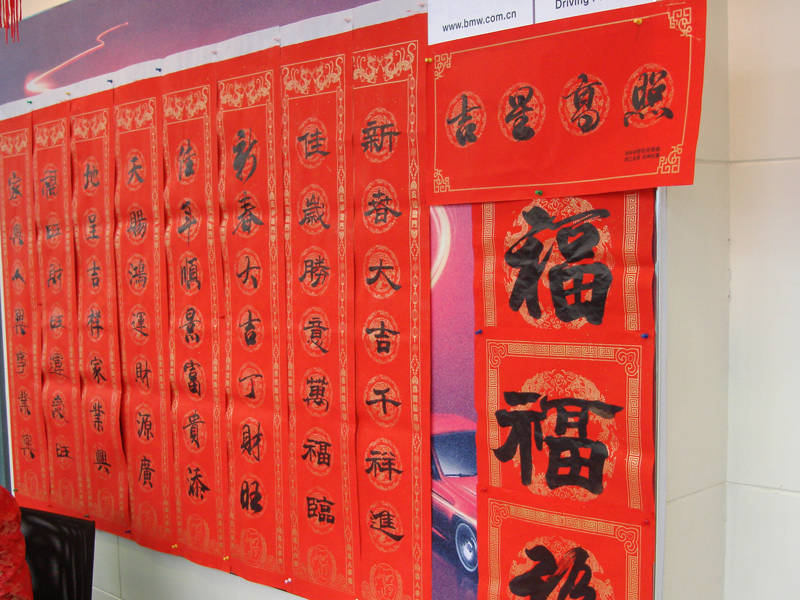 www.bmw.com.cn
Driving
吉星高照
福
福
福
新春大吉千祥進
佳歲勝意萬福臨
新春大吉丁財旺
佳年順景富貴添
天賜鴻運財源廣
地呈吉祥家業興
福旺財旺運氣旺
家興人興事業興